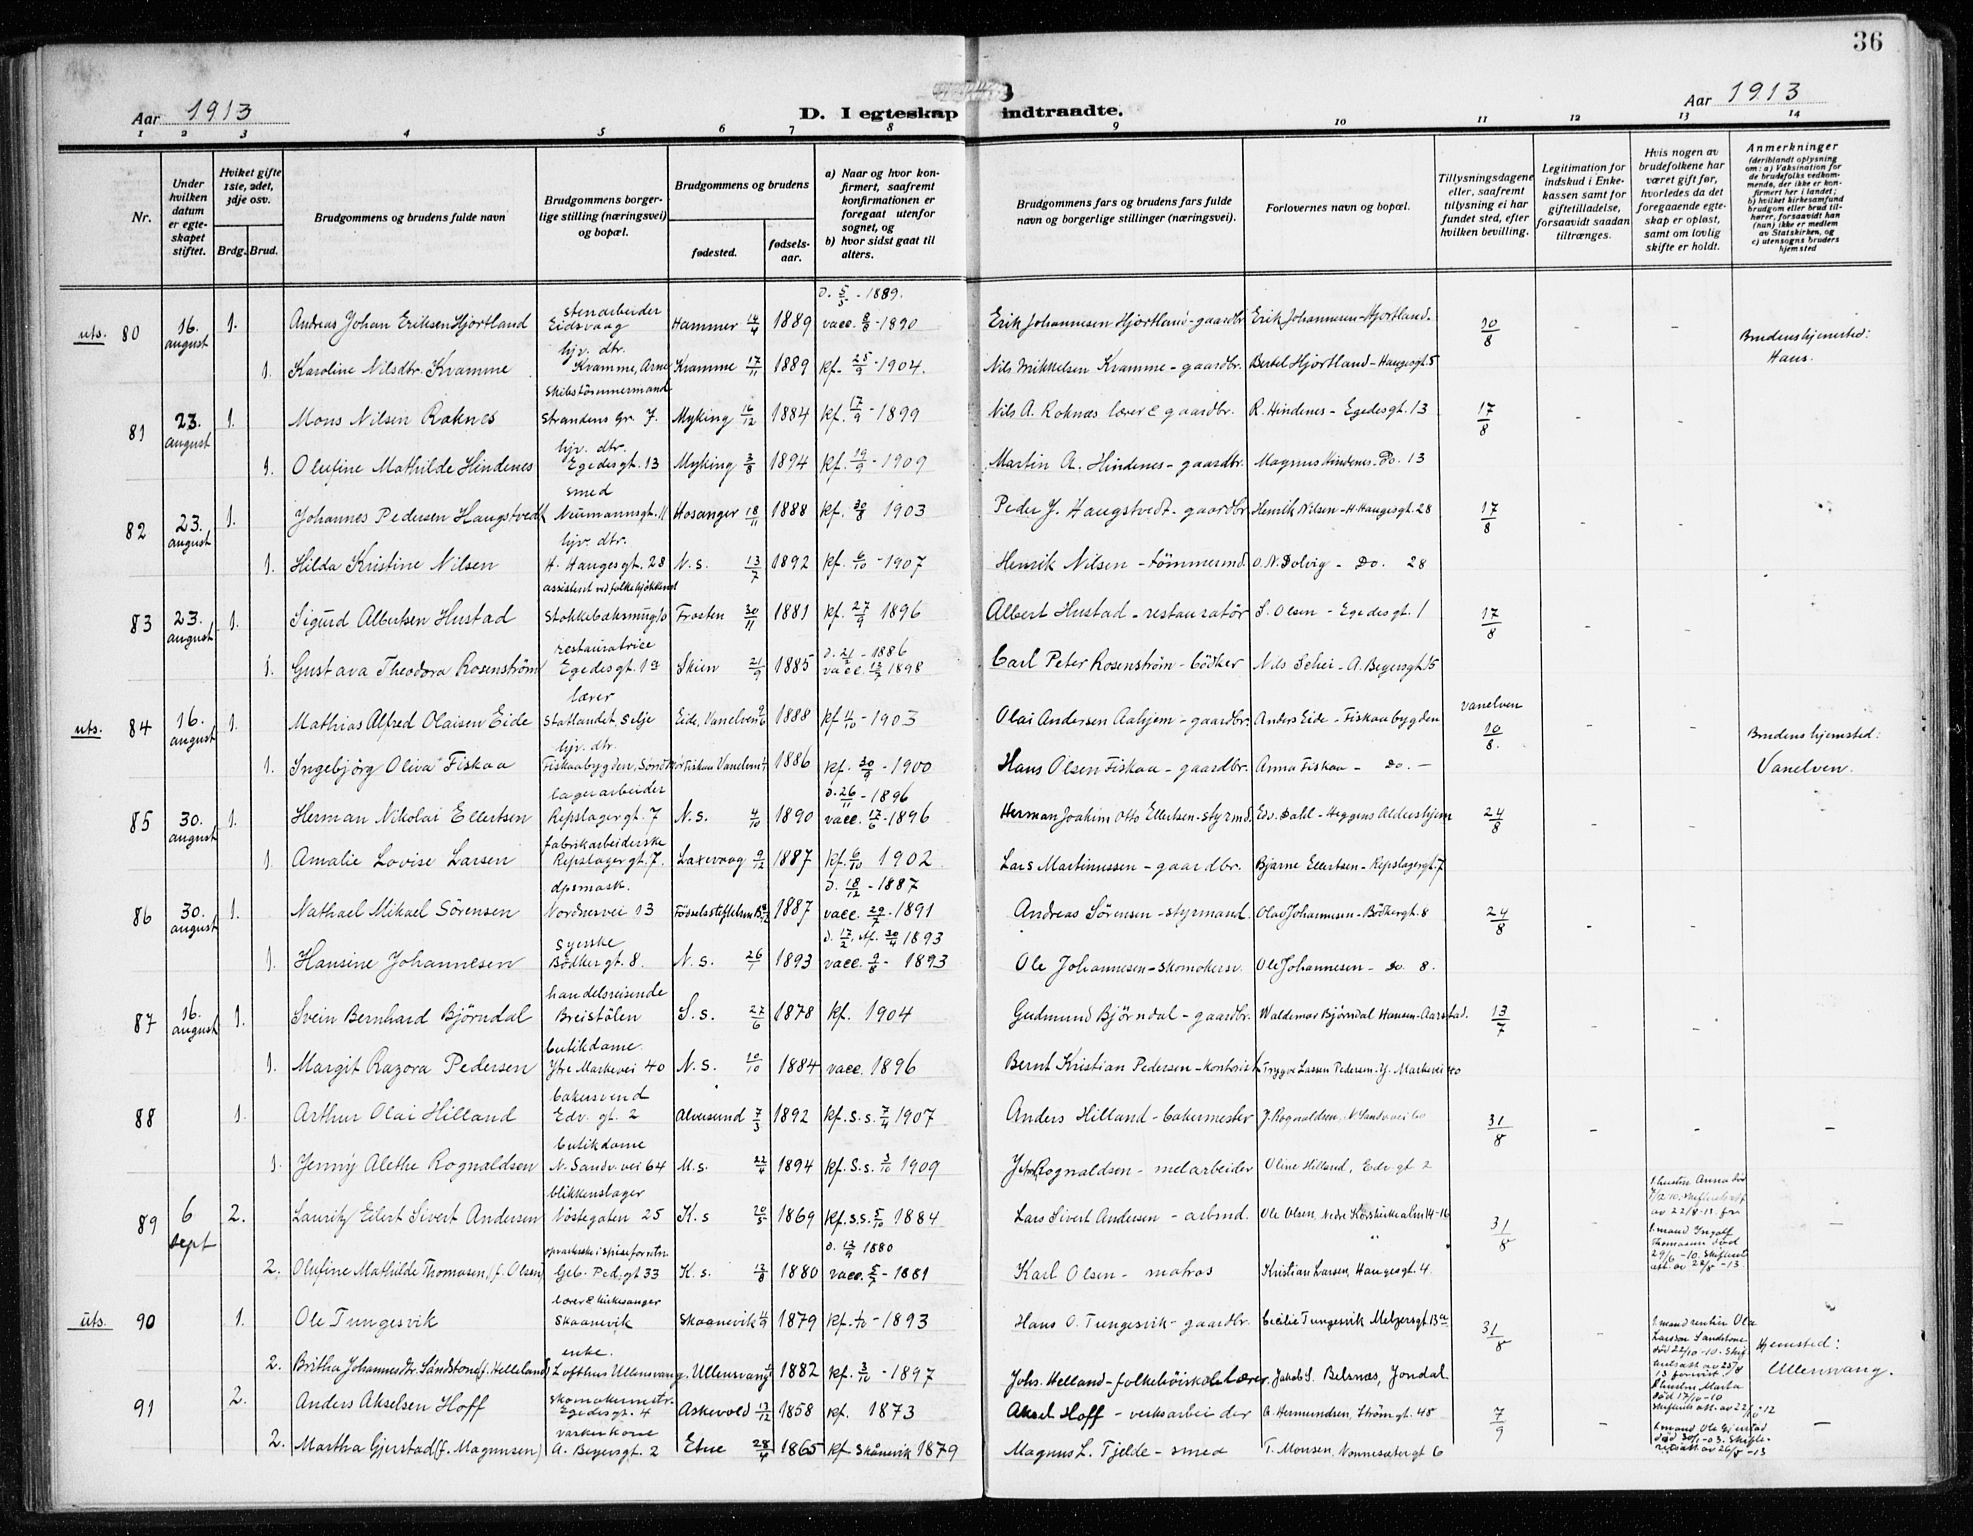 36
Aar 1913
D. I egteskap indtraadte.
Aar 1913
1 2 3 4 5 6 7 8 9 10 11 12 13 14
Nr.
Under hvilken datum er egteskapet stiftet.
Hviket gifte 1ste, 2det, 3dje osv.
Brdg. Brud.
Brudgommens og brudens fulde navn
Brudgommens borgerlige stilling (næringsvei) og bopæl.
Brudgommens og brudens
fødested.
fødselsaar.
a) Naar og hvor konfirmert, saafremt konfirmationen er foregaat utenfor sognet, og
b) hvor sidst gaat til alters.
Brudgommens fars og brudens fars fulde navn og borgerlige stillinger (næringsvei).
Forlovernes navn og bopæl.
Tillysningsdagene eller, saafremt tillysning ei har fundet sted, efter hvilken bevilling.
Legitimation for indskud i Enkekassen samt for giftetilladelse, forsaavidt saadan tiltrænges.
Hvis nogen av brudefolkene har været gift før, hvorledes da det foregaaende egteskap er opløst, samt om lovlig skifte er holdt.
Anmerkninger (deriblandt oplysning om: a) Vaksination for de brudefolks vedkommende, der ikke er konfirmert her i landet; b) hvilket kirkesamfund brudgom eller brud tilhører, forsaavidt han (hun) ikke er medlem av Statskirken, og c) utensogns bruders hjemsted
uts. 80 16. august 1. Andreas Johan Eriksen Hjortland stenarbeider Eidsvaag Hammer 14/4 1889 d. 5/5 - 1889. vacc. 8/8 - 1890 Erik Johannesen Hjortland - gaardbr. Erik Johannesen - Hjortland. 10/8 - - Brudens hjemsted: Haus.
1. Karoline Nilsdtr. Kvamme hjv. dtr. Kvamme, Arne Kvamme 17/11 1889 kf. 25/9 - 1904. Nils Mikkelsen Kvamme - gaardbr. Bertel Hjortland - Haugesgt. 5
81 23. august 1. Mons Nilsen Roknes skibstömmermand Strandens Gr. 7. Myking 16/12 1884 kf. 17/9 - 1899 Nils A. Roknæs lærer & gaardbr. R. Hindenes - Egedesgt. 13 17/8 - -
1. Olufine Mathilde Hindenes hjv. dtr. Egedesgt. 13 Myking 3/8 1894 kf. 19/9 - 1909 Martin A. Hindenes - gaardbr. Magnus Hindenes - Do. 13
82 23. august 1. Johannes Pedersen Haugstvedt smed Neumannsgt. 11 Hosanger 18/11 1888 kf. 30/8 1903 Peder J. Haugstvedt - gaardbr. Henrik Nilsen - H. Haugesgt. 28 17/8 - -
1. Hilda Kristine Nilsen hjv. dtr. H. Haugesgt. 28 N. s. 13/7 1892 kf. 6/10 - 1907 Henrik Nilsen - tömmermd. O. N. Dolvig - Do. 28
83 23. august 1. Sigurd Albertsen Hustad assistent ved folkekjøkkenet Stokkebaksmug 10 Frosten 30/11 1881 kf. 27/9 1896 Albert Hustad - restauratör S. Olsen - Egedesgt. 1 17/8 - -
1. Gustava Theodora Rosenström restauratrice Egedesgt. 1a Skien 21/9 1885 d. 21/2 - 1886 vacc. 13/7 1898 Carl Peter Rosenstrøm - bödker Nils Schei - A. Beyersgt. 15
uts. 84 16. august 1. Mathias Alfred Olaisen Eide lærer Statlandet, Selje Eide, Vanelven 9/6 1888 kf 4/10 - 1903 Olai Andersen Aahjem - gaardbr. Anders Eide - Fiskaabygden Vanelven 10/8. - - Brudens hjemsted: Vanelven.
1. Ingebjörg Oliva Fiskaa hjv. dtr. Fiskaabygden, Söndmør Fiskaa Vanelven 1886 kf. 30/9 - 1900 Hans Olsen Fiskaa - gaardbr. Anna Fiskaa - Do. -
85 30. august 1. Herman Nikolai Ellertsen lagerarbeider Repslagergt. 7 N. s. 4/10 1890 d. 26/11 - 1896 vacc. 17/6 - 1896 Herman Joakim Otto Ellertsen - styrmd. Edv. Dahl - Heggens Aldershjem 24/8 - -
1. Amalie Lovise Larsen fabrikarbeiderske Repslagergt. 7. Laxevaag 9/12 1887 kf. 6/10 1902 Lars Martinussen - gaardbr. Bjarne Ellertsen - Repslagergt. 7
86 30. august 1. Nathael Mikael Sörensen dpsmask. Nordnesvei 13 Födselsstiftelsen 1887 d. 18/12 - 1887 vacc. 29/7 - 1891 Andreas Sørensen - styrmand. Olav Johannesen - Bödkergt. 8 24/8 - -
1. Hansine Johannesen syerske Bödkergt. 8. N. s. 26/1 1893 d. 17/2, 30/4 1893 vacc. 9/8 - 1893 Ole Johannesen - skomakersv. Ole Johannesen - Do. 8.
87 16. august 1. Svein Bernhard Björndal handelsreisende Breistölen S. s. 27/6 1878 kf. 1904 Gudmund Bjørndal - gaardbr. Waldemar Bjørndal Hansen - Aarstad. 13/7 - -
1. Margit Razora Pedersen butikdame. Ytre Markevei 40 N. s. 10/10 1884 vacc. 1896 Bernt Kristian Pedersen - kontorist Trygve Lassen Pedersen - Y. Markevei 40
88 1. Arthur Olai Hilland bakersvend Edv. gt. 2 Alversund 7/3 1892 kf. S. s. 7/4 1907 Anders Hilland - bakermester J. Rognaldsen, N. Sandvvei 60 31/8 - - -
1. Jenny Alethe Rognaldsen butikdame N. Sandv. vei 64 M. s. 22/4 1894 kf. S. s. 3/10 1909 Rognaldsen - metarbeider Oline Hilland, Edv gt 2
89 6 sept 2. Lauritz Eilert Sivert Andersen blikkenslager Nöstegaten 25 K. s 20/5 1869 kf. s. s. 5/10 1884 Lars Sivert Andersen - arbmd. Ole Olsen, Nedre Korskirkealm 14-16 31/8 - 1. hustru Anna död 7/12 10. skifteatt av 22/8 - 13. for 1. mand Ingolf Thomasen död 29/6 - 10. Skifteatt. av 22/8 - 13
2. Olufine Mathilde Thomasen, (f. Olsen) Geb. Ped. gt 33 K. s. 13/8 1880 d. 12/9 1880 vacc. 5/7 - 1881 Karl Olsen - matros Kristian Larsen, Haugesgt. 4.
uts. 90 1. Ole Tungesvik lærer & kirkesanger Skaanevik Skaanevik 4/9 1879 kf. 1/10 - 1893 Hans O. Tungesvik - gaardbr. Cecilie Tungesvik Meltzersgt 13a 31/8 - 1. mand rentier Ola Larsson Sandstone död 22/10 - 10. Hjemsted: Ullensvang.
2. Britha Johannesdtr. Sandstone (f. Helleland) enke. Lofthus Ullensvang. Ullensvang 1882 kf. 3/10 - 1897 Johs. Helland - folkehöiskolelærer. Jakob S. Belsnæs, Jondal
91 2. Anders Akselsen Hoff skomakermstr. Egedesgt. 4 Askevold 13/12 1858 kf. 1873 Aksel Hoff - verksarbeider A. Hermundsen, Strömgt. 45 7/9 - 1. hustru Marta död 17/10 - 10 skifteatt. av 22/10 - 12
2. Martha Gjerstad (f. Magnussen) vaskerkone A. Beyersgt. 2 Etne 28/4 1865 kf Skånevik 1879 Magnus L. Tjelde - smed T. Monsen, Nonnesætergt 6 1. mand Ole Gjerstad död 30/1 - 03. av 26/8 - 13